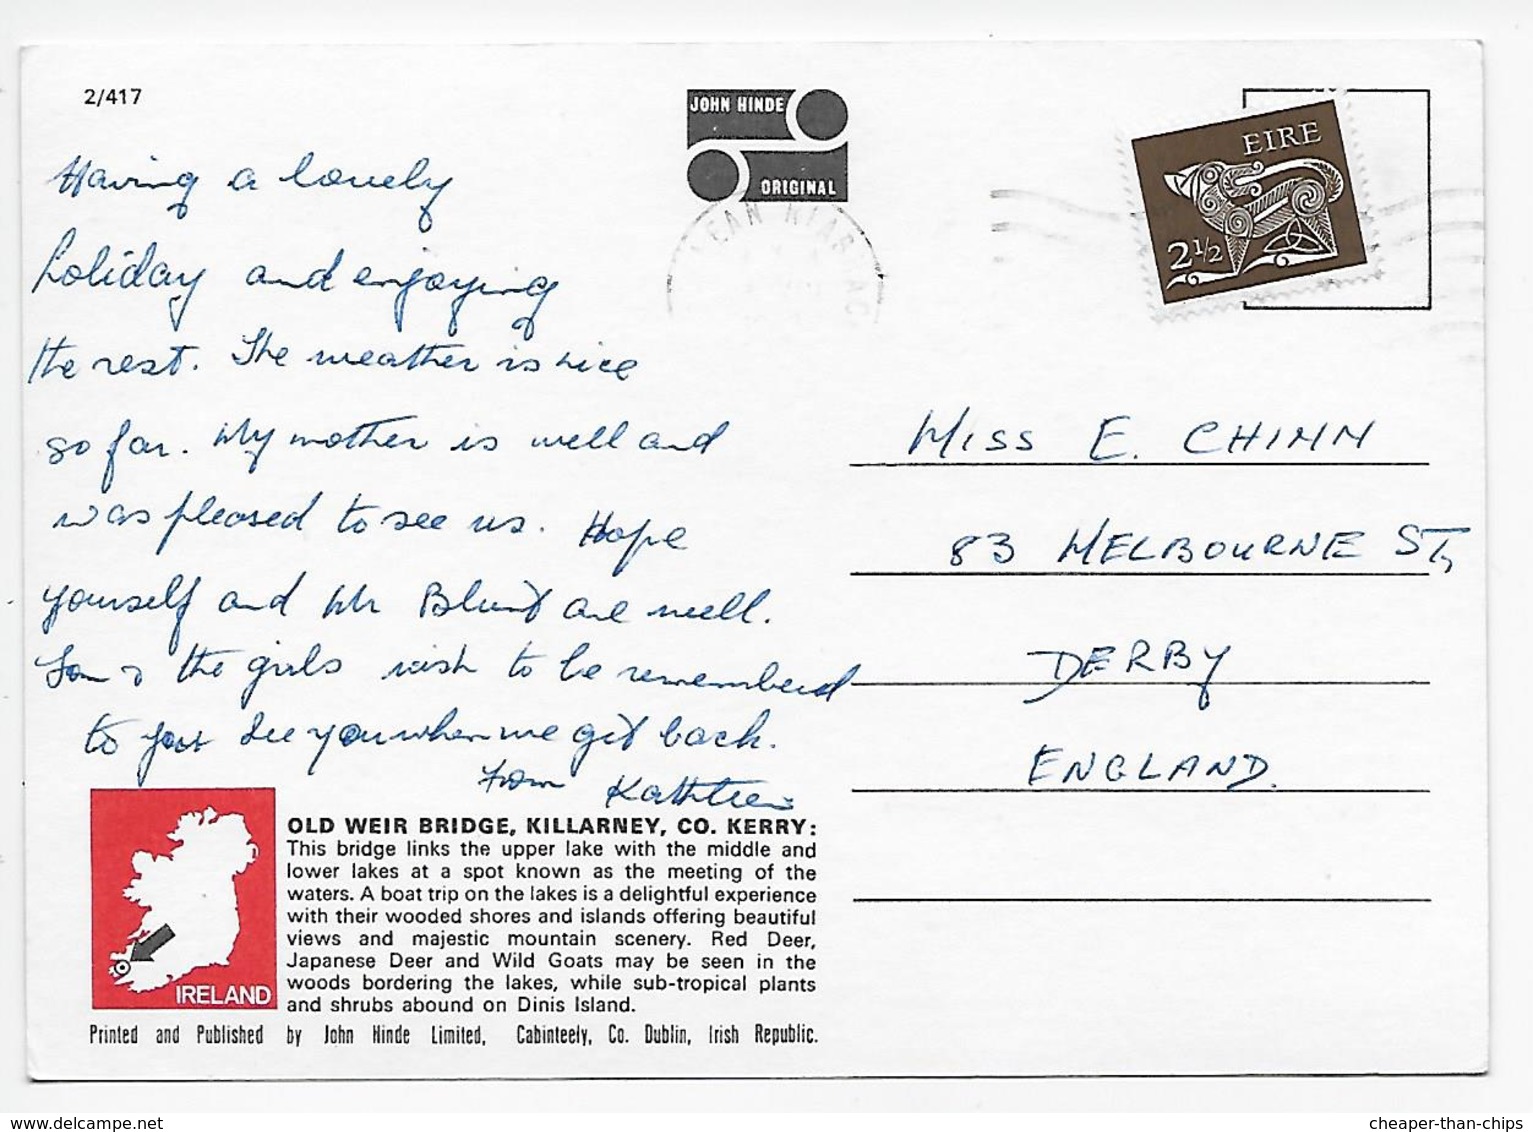 2/417
JOHN HINDE
ORIGINAL
EIRE
2 1/2
Having a lovely
holiday and enjoying
the rest. The weather is nice
so far. My mother is well and
was pleased to see us. Hope
yourself and Mr Blunt are well.
& the girls wish to be remembered
to you see you when we get back.
from Kathleen
MISS E. CHINN
83 MELBOURNE ST,
DERBY
ENGLAND.
OLD WEIR BRIDGE, KILLARNEY, CO. KERRY:
This bridge links the upper lake with the middle and
lower lakes at a spot known as the meeting of the
waters. A boat trip on the lakes is a delightful experience
with their wooded shores and islands offering beautiful
views and majestic mountain scenery. Red Deer,
Japanese Deer and Wild Goats may be seen in the
woods bordering the lakes, while sub-tropical plants
and shrubs abound on Dinis Island.
IRELAND
Printed and Published by John Hinde Limited, Cabinteely, Co. Dublin, Irish Republic.
www.delcampe.net
cheaper-than-chips